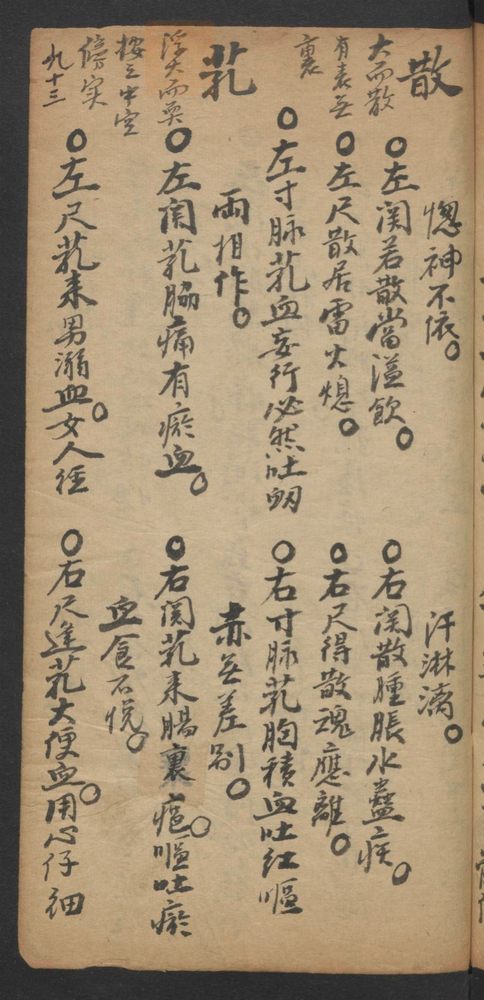 散
惚神不依。
汗淋漓。
大而散
○左関若散當溢飲。
○右関散腫脹水蠱疾。
有表無
○左尺散居雷火熄。
○右尺得散魂應離。
裏
○左寸脉芤血妄行必然吐衂
○右寸脉芤胸積血吐红嘔
芤
両相作。
赤無差別。
浮大而耎
○左関芤脇痛有瘀血。
○右関芤来腸裏癰。嘔吐瘀
按之中空
血食不悦。
傍实
○左尺芤来男溺血。女人経
○右尺逢芤大便血。用心仔細
九十三